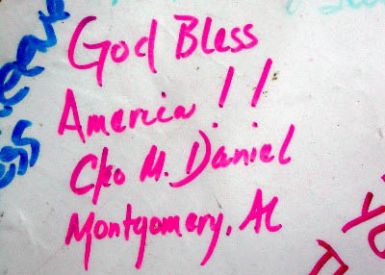 God Bless
America!!
Cleo M. Daniel
Montgomery, AL